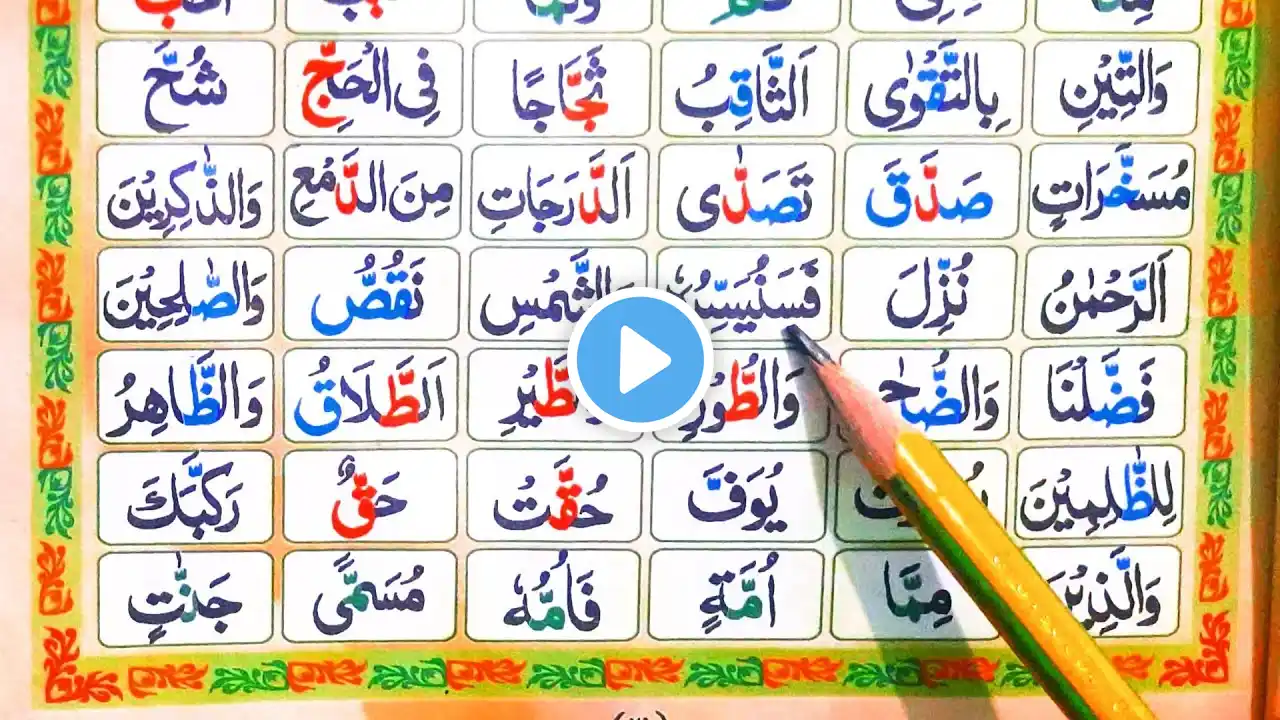 وَالتِّيْنِ بِالتَّقْوٰى اَلثَّاقِبُ ثَجَّاجًا فِى الْحَجِّ شُحَّ
مُسَخَّرَاتٍ صَدَّقَ تَصَدّٰى اَلدَّرَجَاتِ مِنَ الدَّمْعِ وَالذّٰكِرِيْنَ
اَلرَّحْمٰنُ نُزِّلَ فَسَنُيَسِّرُهٗ وَالشَّمْسِ نَقُصُّ وَالصّٰلِحِيْنَ
فَضَّلْنَا وَالطُّوْرِ اَلطَّلَاقُ وَالظَّاهِرُ
لِلظّٰلِمِيْنَ يُوَفَّ حُقَّتْ حَقٌّ رَكَّبَكَ
وَالَّذِيْنَ مِمَّا اُمَّةٍ فَاُمُّهٗ مُسَمًّى جَنّٰتٍ